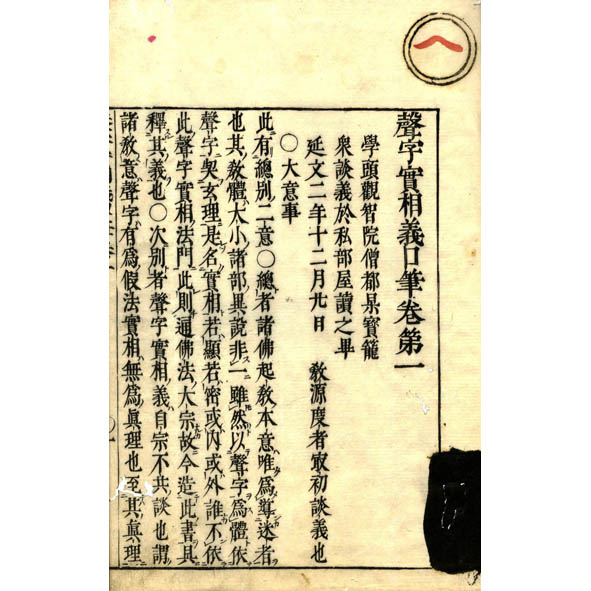 聲字實相義口筆卷第一
學頭觀智院僧都杲寶籠
衆談義於私部屋讀之畢
延文二年十二月廿日 教源慶者㝡初談義也
○大意事
此有總別二意○總者諸佛起教本意唯爲導迷者
也其教體大小諸部異說非一雖然以聲字爲體依
聲字契玄理是名實相若顯若密或內或外誰不依
此聲字實相法門此則通佛法大宗故今造此書具
釋其義也○次別者聲字實相義自宗不共談也謂
諸教意聲字有爲假法實相無爲眞理也至其眞理